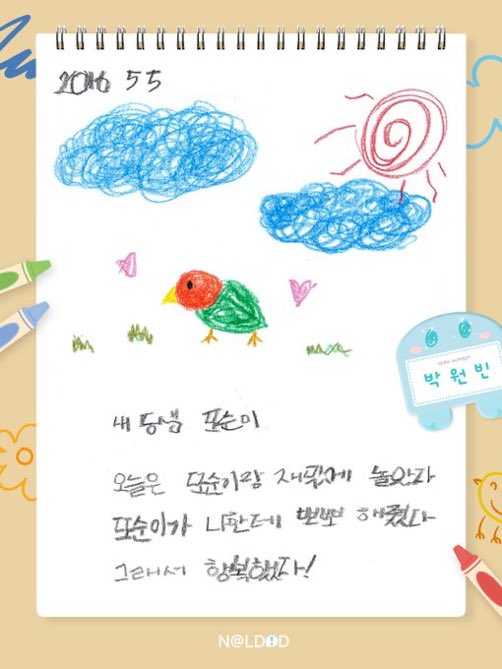 2016 5 5
박 원 빈
내 동생 또순이
오늘은 또순이랑 재밌게 놀았다
또순이가 나한테 뽀뽀 해줬다
그래서 행복했다!
N@LD!D